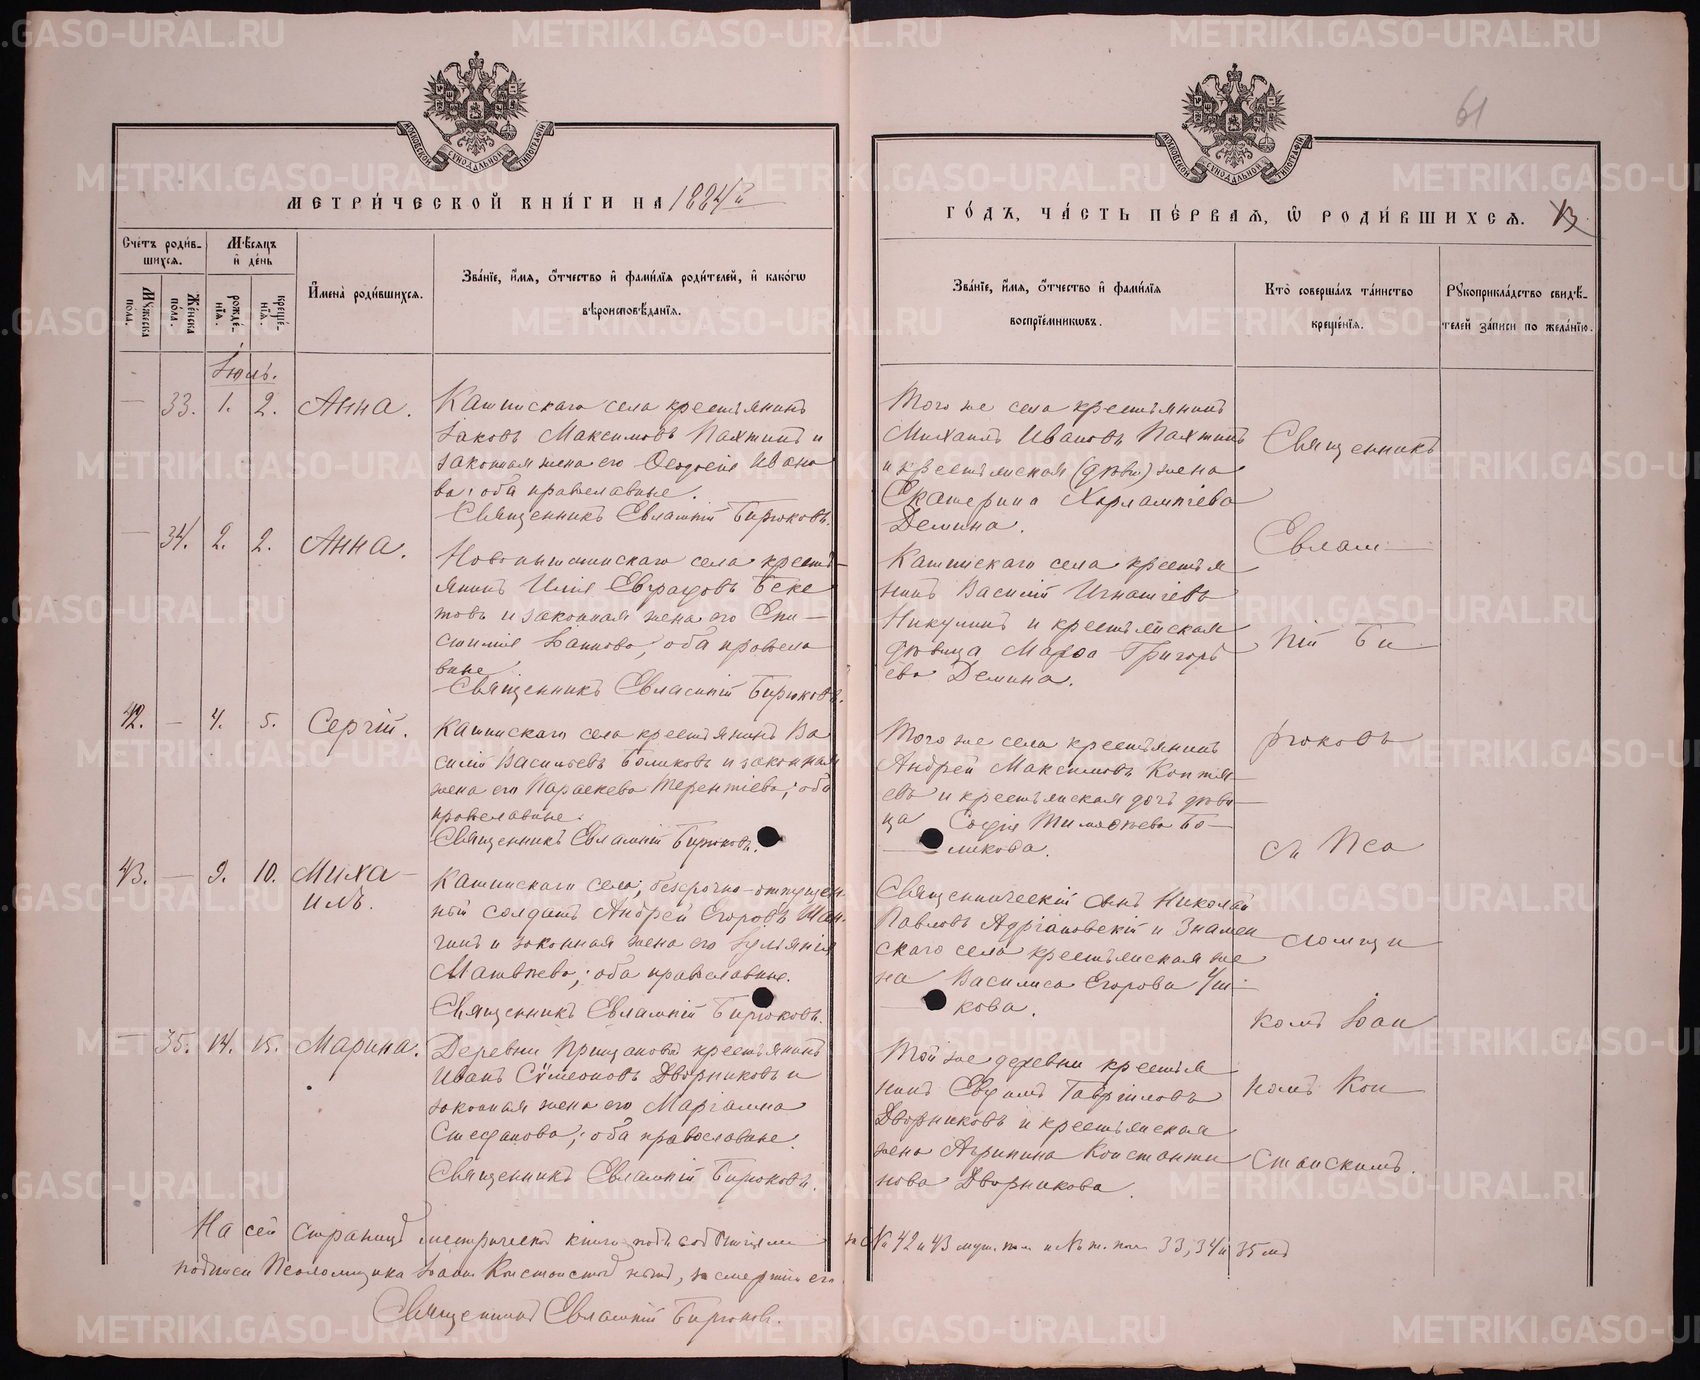 61
МОСКОВСКОЙ СѴНОДАЛЬНОЙ ТИПОГРАФІИ
МОСКОВСКОЙ СѴНОДАЛЬНОЙ ТИПОГРАФІИ
МЕТРИ́ЧЕСКОЙ КНИ́ГИ НА 1884й
ГО́ДЪ, ЧА́СТЬ ПЕ́РВАЯ, Ѡ РОДИ́ВШИХСЯ. 13
Сче́тъ роди́в-
шихся.
Мѣ́сяцъ
и де́нь
Мꙋ́жеска пола.
Же́нска пола.
рожде́-
нія.
креще́-
нія.
Имена̀ роди́вшихся.
Зва́ніе, и́мя, о́тчество и фами́лія роди́телей, и како́гѡ
вѣроисповѣ́данія.
Зва́ніе, и́мя, о́тчество и фами́лія
воспріе́мниковъ.
Кто̀ соверша́лъ та́инство
креще́нія.
Рꙋкоприкла́дство свидѣ́-
телей за́писи по жела́нію.
Іюль.
— 33. 1. 2. Анна.
Кашинскаго села крестьянинъ
Іаковъ Максимовъ Пахтинъ и
законная жена его Ѳеодосія Ивано
ва; оба православные.
Священникъ Евлампій Бирюковъ.
Того же села крестьянинъ
Михаилъ Ивановъ Пахтинъ
и крестьянская жена
Екатерина Харлампіева
Демина.
— 34. 2. 2. Анна.
Новопышминскаго села кресть-
янинъ Илія Евграфовъ Беке
товъ и законная жена его Епи-
стимія оба правосла
вные.
Священникъ Евлампій Бирюковъ.
Кашинскаго села крестья
нинъ Василій Игнатіевъ
Никулинъ и крестьянская
дѣвица Марѳа Григорь
ева Демина.
42. — 4. 5. Сергій.
Кашинскаго села крестьянинъ Ва
силій Васильевъ и законная
жена его Параскева Терентіева; оба
православные.
Священникъ Евлампій Бирюковъ.
Того же села крестьянинъ
Андрей Максимовъ Коптя-
евъ и крестьянская дочь дѣви-
ца Софія Тимоѳеева Бо-
ликова.
43. — 9. 10. Миха-
илъ.
Кашинскаго села; безсрочно-отпущен-
ный солдатъ Андрей Егоровъ
и законная жена его Іуліянія
Матвѣева; оба православные.
Священникъ Евлампій Бирюковъ.
Священническій сынъ Николай
Павловъ Адріановскій и Знамен
скаго села крестьянская же
на Василиса Егорова
кова.
— 35. 14. 15. Марина.
Деревни крестьянинъ
Иванъ Сѵмеоновъ Дворниковъ и
законная жена его Маріамна
Стефанова; оба православные.
Священникъ Евлампій Бирюковъ.
Той же деревни крестья
нинъ Евдимъ Гавріиловъ
Дворниковъ и крестьянская
жена Агрипина Константи
нова Дворникова.
Священникъ
Евлам-
пій Би-
рюковъ
съ Пса
ломщи
комъ Іоан
номъ Кон
станскимъ.
На сей страницѣ метрической книги подъ событіями за № 42 и 43 муж. пола и № ж. пола 33, 34 и 35 нѣтъ
подписи Псаломщика Іоанна за смертію его
Священникъ Евлампій Бирюковъ.
METRIKI.GASO-URAL.RU